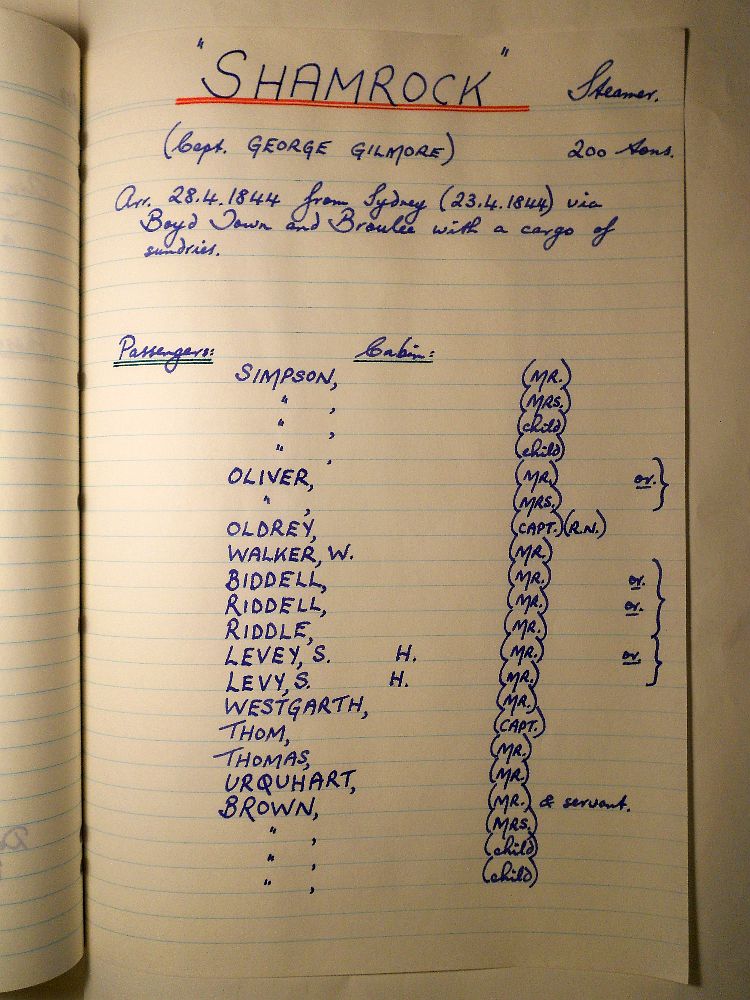 "SHAMROCK" Steamer.
(Capt. GEORGE GILMORE) 200 tons.
Arr. 28.4.1844 from Sydney (23.4.1844) via
Boyd Town and Broulee with a cargo of
sundries.
Passengers: Cabin:
SIMPSON, (MR.)
" , (MRS.)
" , (child)
" , (child)
OLIVER, (MR.) or.
" , (MRS.)
OLDREY, (CAPT.)(R.N.)
WALKER, W. (MR.)
BIDDELL, (MR.) or.
RIDDELL, (MR.) or.
RIDDLE, (MR.)
LEVEY, S. H. (MR.) or.
LEVY, S. H. (MR.)
WESTGARTH, (MR.)
THOM, (CAPT.)
THOMAS, (MR.)
URQUHART, (MR.)
BROWN, (MR.) & servant.
" , (MRS.)
" , (child)
" , (child)